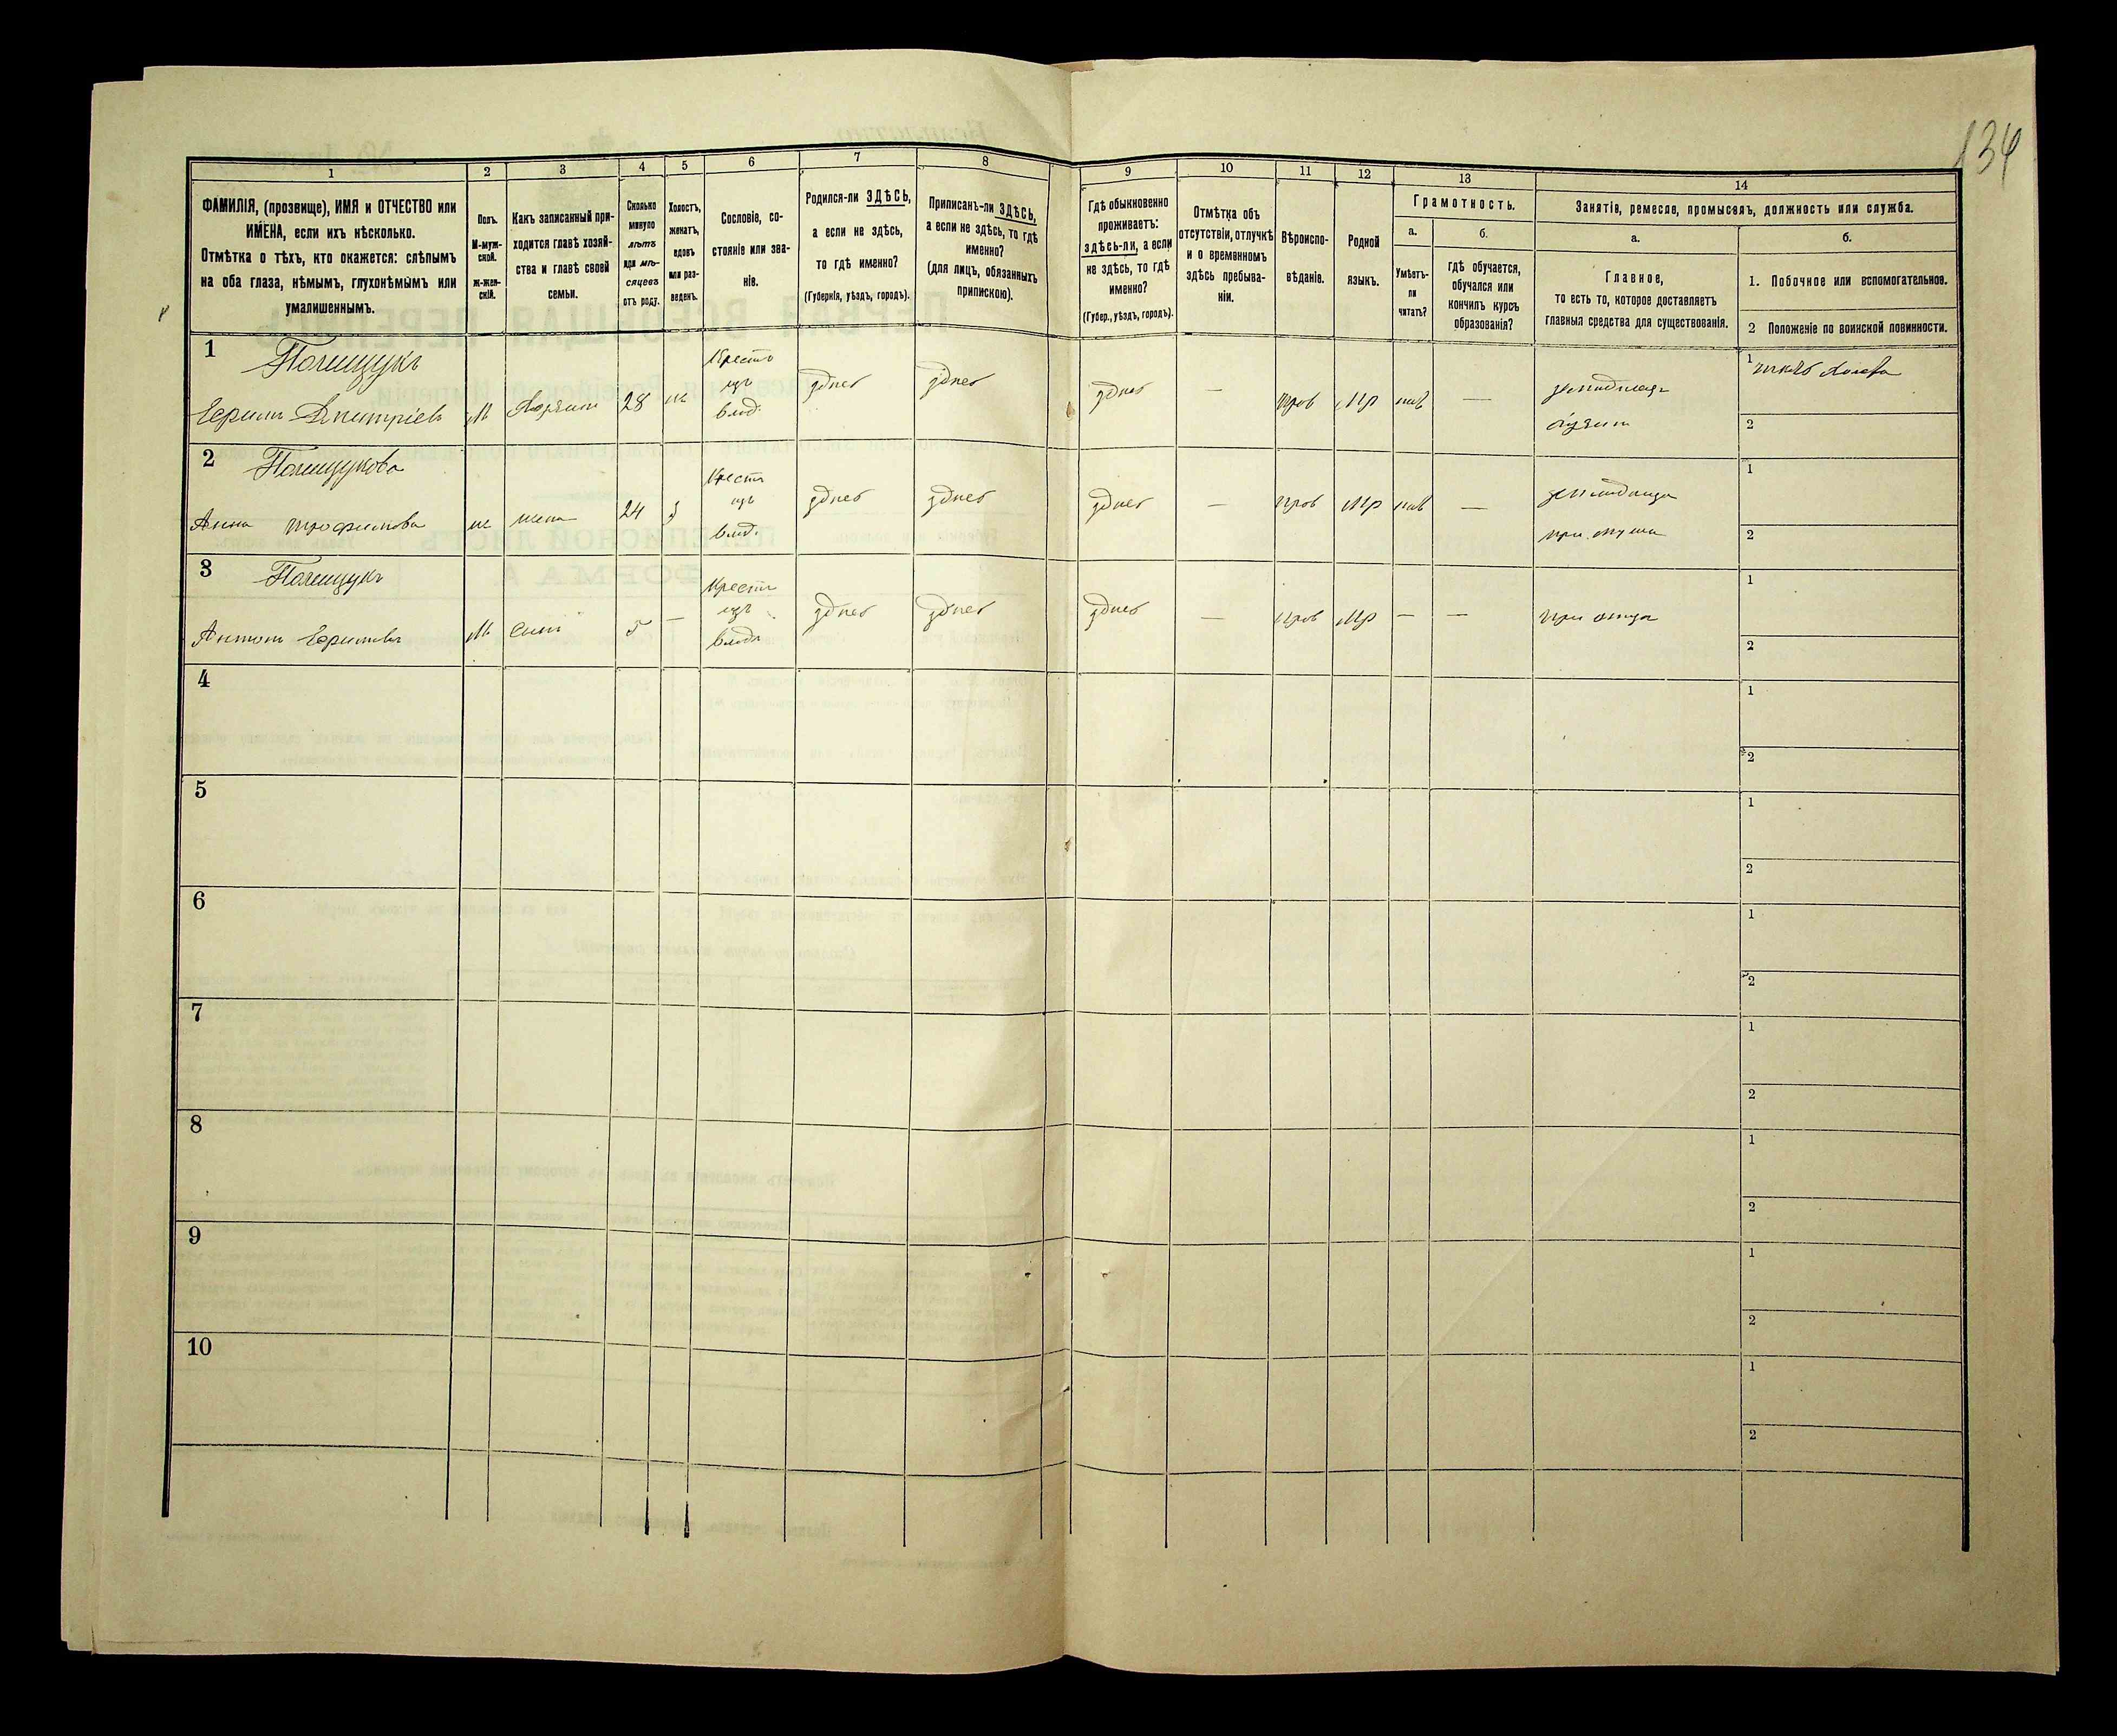 134
1
2
3
4
5
6
7
8
9
10
11
12
13
14
ФАМИЛІЯ, (прозвище), ИМЯ и ОТЧЕСТВО или
ИМЕНА, если ихъ нѣсколько.
Отмѣтка о тѣхъ, кто окажется: слѣпымъ
на оба глаза, нѣмымъ, глухонѣмымъ или
умалишеннымъ.
Полъ.
М-муж-
ской.
ж-жен-
скій.
Какъ записанный при-
ходится главѣ хозяй-
ства и главѣ своей
семьи.
Сколько
минуло
лѣтъ
или мѣ-
сяцевъ
отъ роду.
Холостъ,
женатъ,
вдовъ
или раз-
веденъ.
Сословіе, со-
стояніе или зва-
ніе.
Родился-ли ЗДѢСЬ,
а если не здѣсь,
то гдѣ именно?
(Губернія, уѣздъ, городъ).
Приписанъ-ли ЗДѢСЬ,
а если не здѣсь, то гдѣ
именно?
(для лицъ, обязанныхъ
припискою).
Гдѣ обыкновенно
проживаетъ:
здѣсь-ли, а если
не здѣсь, то гдѣ
именно?
(Губер., уѣздъ, городъ).
Отмѣтка объ
отсутствіи, отлучкѣ
и о временномъ
здѣсь пребыва-
ніи.
Вѣроиспо-
вѣданіе.
Родной
языкъ.
Грамотность.
а.
Умѣетъ-
ли
читать?
б.
гдѣ обучается,
обучался или
кончилъ курсъ
образованія?
Занятія, ремесло, промыселъ, должность или служба.
а.
Главное,
то есть то, которое доставляетъ
главныя средства для существованія.
б.
1. Побочное или вспомогательное.
2 Положеніе по воинской повинности.
1
Полищукъ
Ефимъ Дмитріевъ
М
Хозяинъ
28
ж
Крест
изъ
влад.
здѣсь
здѣсь
здѣсь
—
прав
Мр
—
1
2
2
Полищукова
Анна Трофимова
ж
жена
24
з
Крест
изъ
влад.
здѣсь
здѣсь
здѣсь
—
прав
Мр
—
при мужѣ
1
2
3
Полищукъ
Антонъ Ефимовъ
М
сынъ
5
—
Крест
изъ
влад
здѣсь
здѣсь
здѣсь
—
прав
Мр
—
—
при отцѣ
1
2
4
1
2
5
1
2
6
1
2
7
1
2
8
1
2
9
1
2
10
1
2